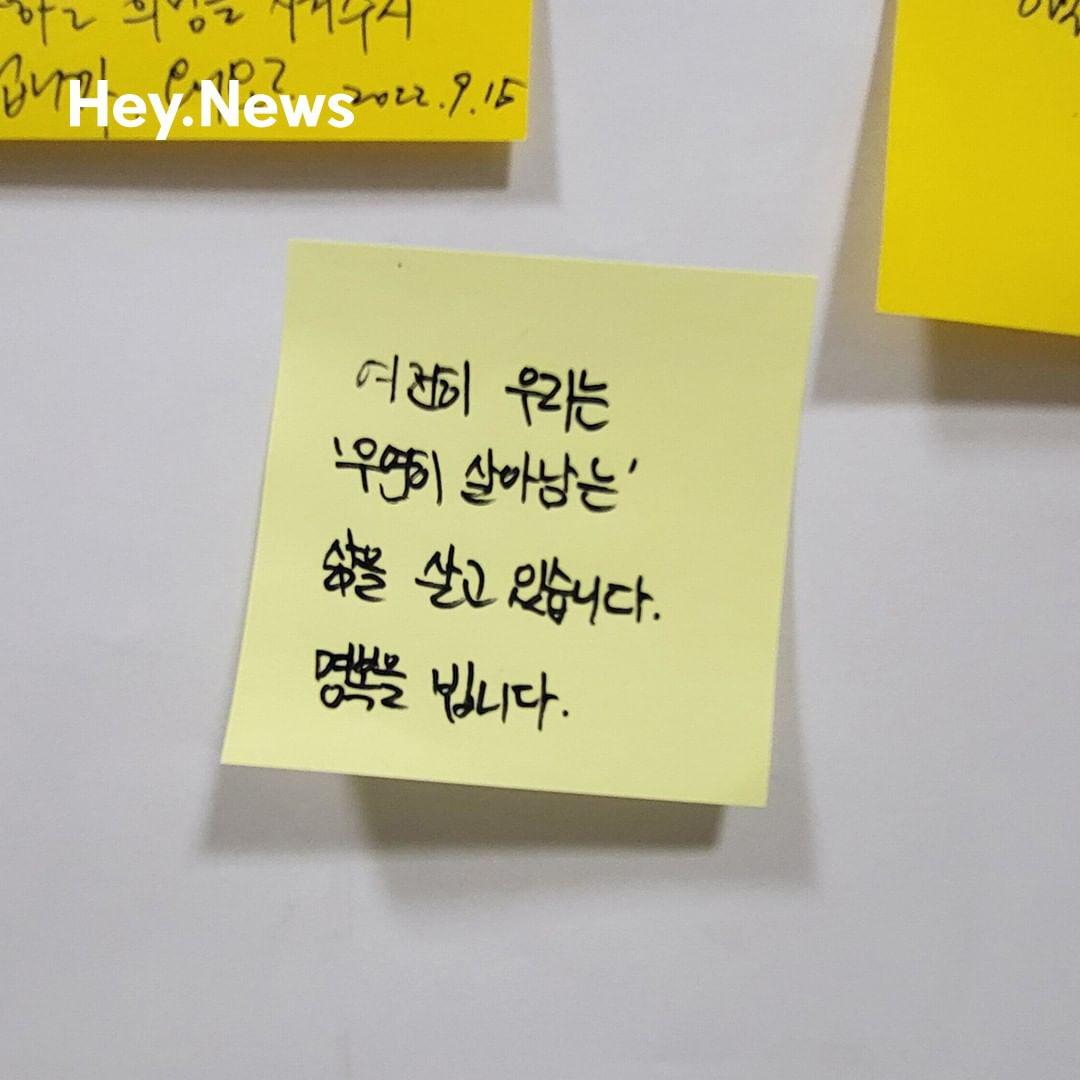 희망을
2022.9.15
Hey.News
여전히 우리는
'우연히 살아남는'
삶을 살고 있습니다.
명복을 빕니다.